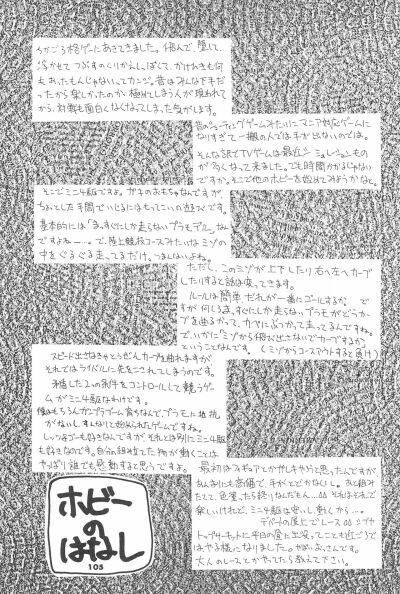 ちかごろ格ゲーにあきてきました。個人で、堕して、
浮かせて つぶすのくりかえしばかで、かけひきも何
もあったもんじゃないってカンジ。昔はみんな下手だ
ったから楽しかったのが、極めてしまう人が現われてか
ら、対戦も面白くなくなってしまった気がします。
昔のシューティングゲームみたいにマニア対応ゲームに
なりすぎて一般の人では手が出ないのでは。
そんな訳でTVゲームは最近シミュレーションもの
が多くなって来ました。でも時間かかるじゃない
ですか。そこで他のホビーを始めてみようかなと。
そこでミニ4駆ですよ。ガキのおもちゃなんですが、
ちょとした手間でいじるにはもってこいの遊びです。
基本的には「まっすぐにしか走らないプラモデル」なん
ですよねー…。で、陸上競技コースみたいなミゾの
中をぐるぐる走ってるだけ。つまんないよね。
ただし、このミゾが上下したり右へ左へカーブ
したりすると話は変ってきます。
ルールは簡単 だれが一番にゴールするか。 で
すが何しろまっすぐにしか走らないプラモがどうカー
ブを曲るかって、カベにぶつかって走ってるんですね。
で、いかに「ミゾから飛び出さないでカーブするか」
ということなんです。(ミゾからコースアウトすると負け)
スピード出さなきゃどんなカーブも曲れますが
それではライバルに先をこされてしまうのです。
矛盾した2つの条件をコントロールして競うゲー
ムがミニ4駆なわけです。
僕はもちろんガンプラブーム育ちなんで、プラモに抵抗
がないし、すんなりと始められたゲームですね。
レッツ&ゴーも好きなんですが、それとは別にミニ4駆
も好きなのです。自分の組み立てた物が動くことは
やっぱり誰でも感動すると思うですよ。
最初はフィギュアとかやしキやろうと思ったんですが
あんまりにも高価で、手がとどかないし。あと組み
たてて、色塗ったら終りなんだもん…。それはそれで
楽しいけれど、ミニ4駆は安いし、動くから…。
デパートの屋上でレース
トップサーキットに平日の昼に出没ってことも近ごろで
はやる様になりました。
大人のレースとかやってたら教えて下さい。
ホビー
の
はなし
105